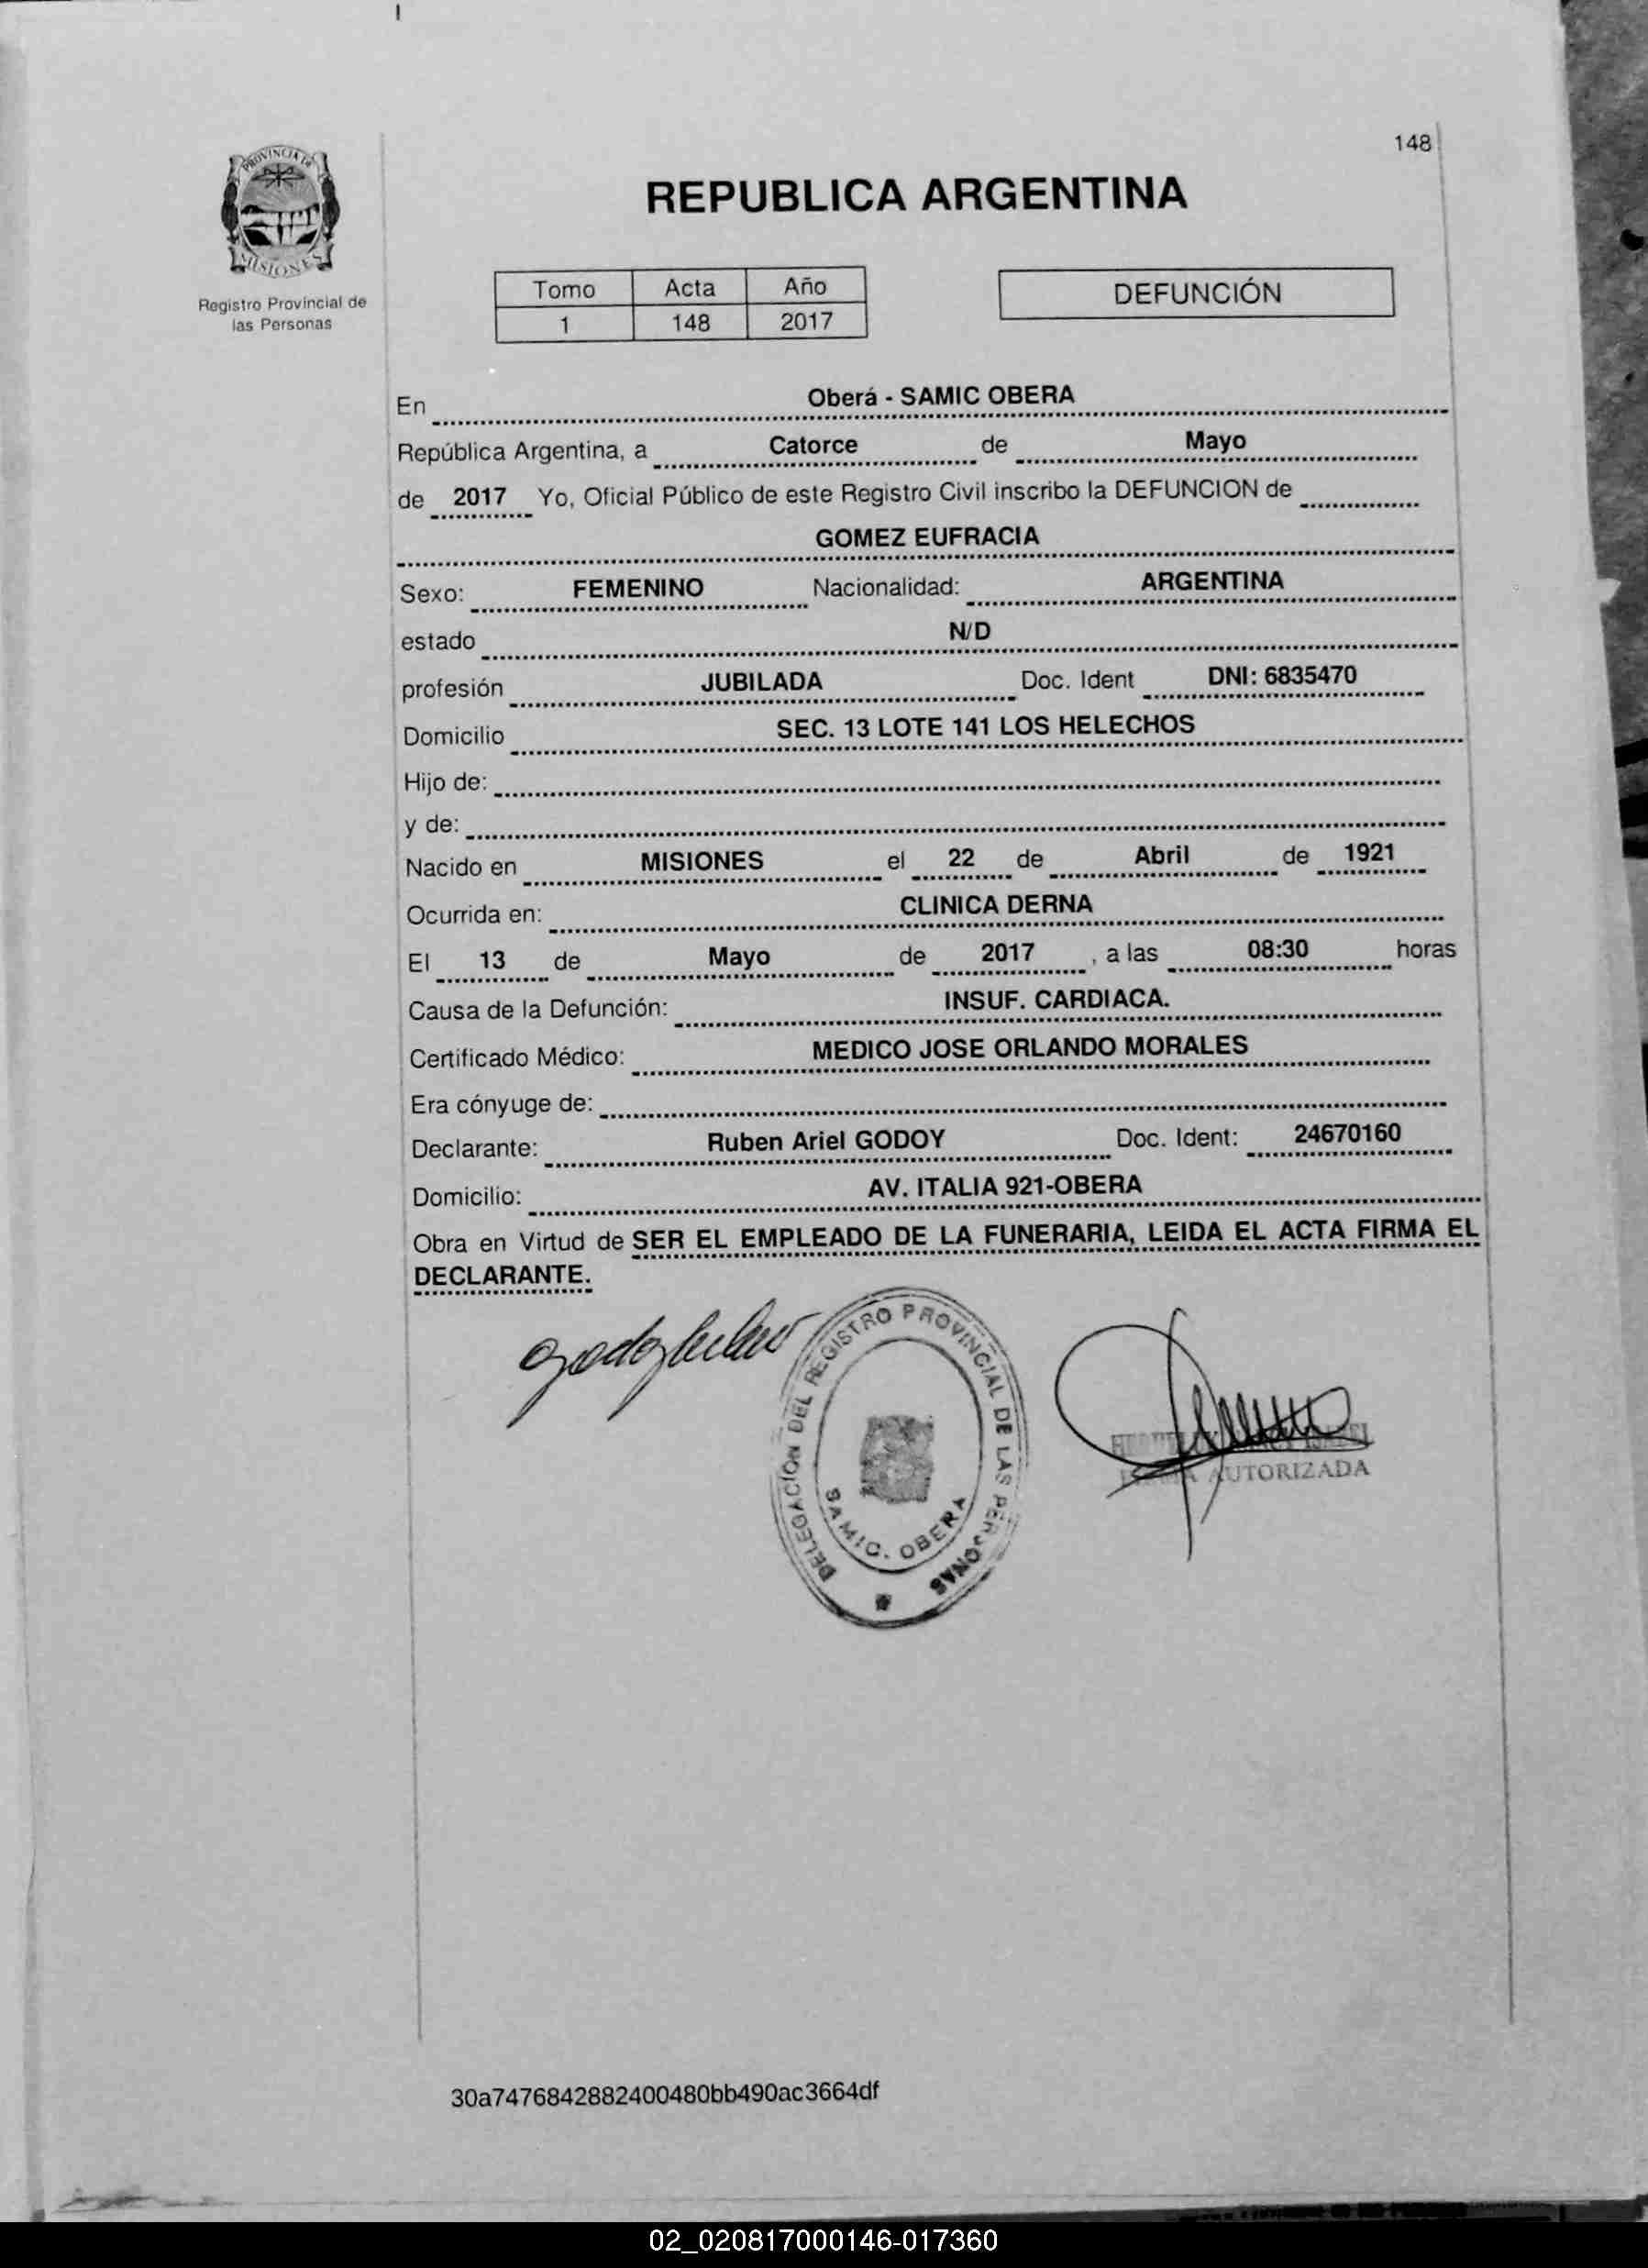 148
PROVINCIA DE
MISIONES
Registro Provincial de
las Personas
REPUBLICA ARGENTINA
Tomo Acta Año
1 148 2017
DEFUNCIÓN
En Oberá - SAMIC OBERA
República Argentina, a Catorce de Mayo
de 2017 Yo, Oficial Público de este Registro Civil inscribo la DEFUNCION de
GOMEZ EUFRACIA
Sexo: FEMENINO Nacionalidad: ARGENTINA
estado N/D
profesión JUBILADA Doc. Ident DNI: 6835470
Domicilio SEC. 13 LOTE 141 LOS HELECHOS
Hijo de:
y de:
Nacido en MISIONES el 22 de Abril de 1921
Ocurrida en: CLINICA DERNA
El 13 de Mayo de 2017 , a las 08:30 horas
Causa de la Defunción: INSUF. CARDIACA.
Certificado Médico: MEDICO JOSE ORLANDO MORALES
Era cónyuge de:
Declarante: Ruben Ariel GODOY Doc. Ident: 24670160
Domicilio: AV. ITALIA 921-OBERA
Obra en Virtud de SER EL EMPLEADO DE LA FUNERARIA, LEIDA EL ACTA FIRMA EL
DECLARANTE.
DELEGACIÓN DEL REGISTRO PROVINCIAL DE LAS PERSONAS
SAMIC. OBERA
AUTORIZADA
30a7476842882400480bb490ac3664df
02_020817000146-017360